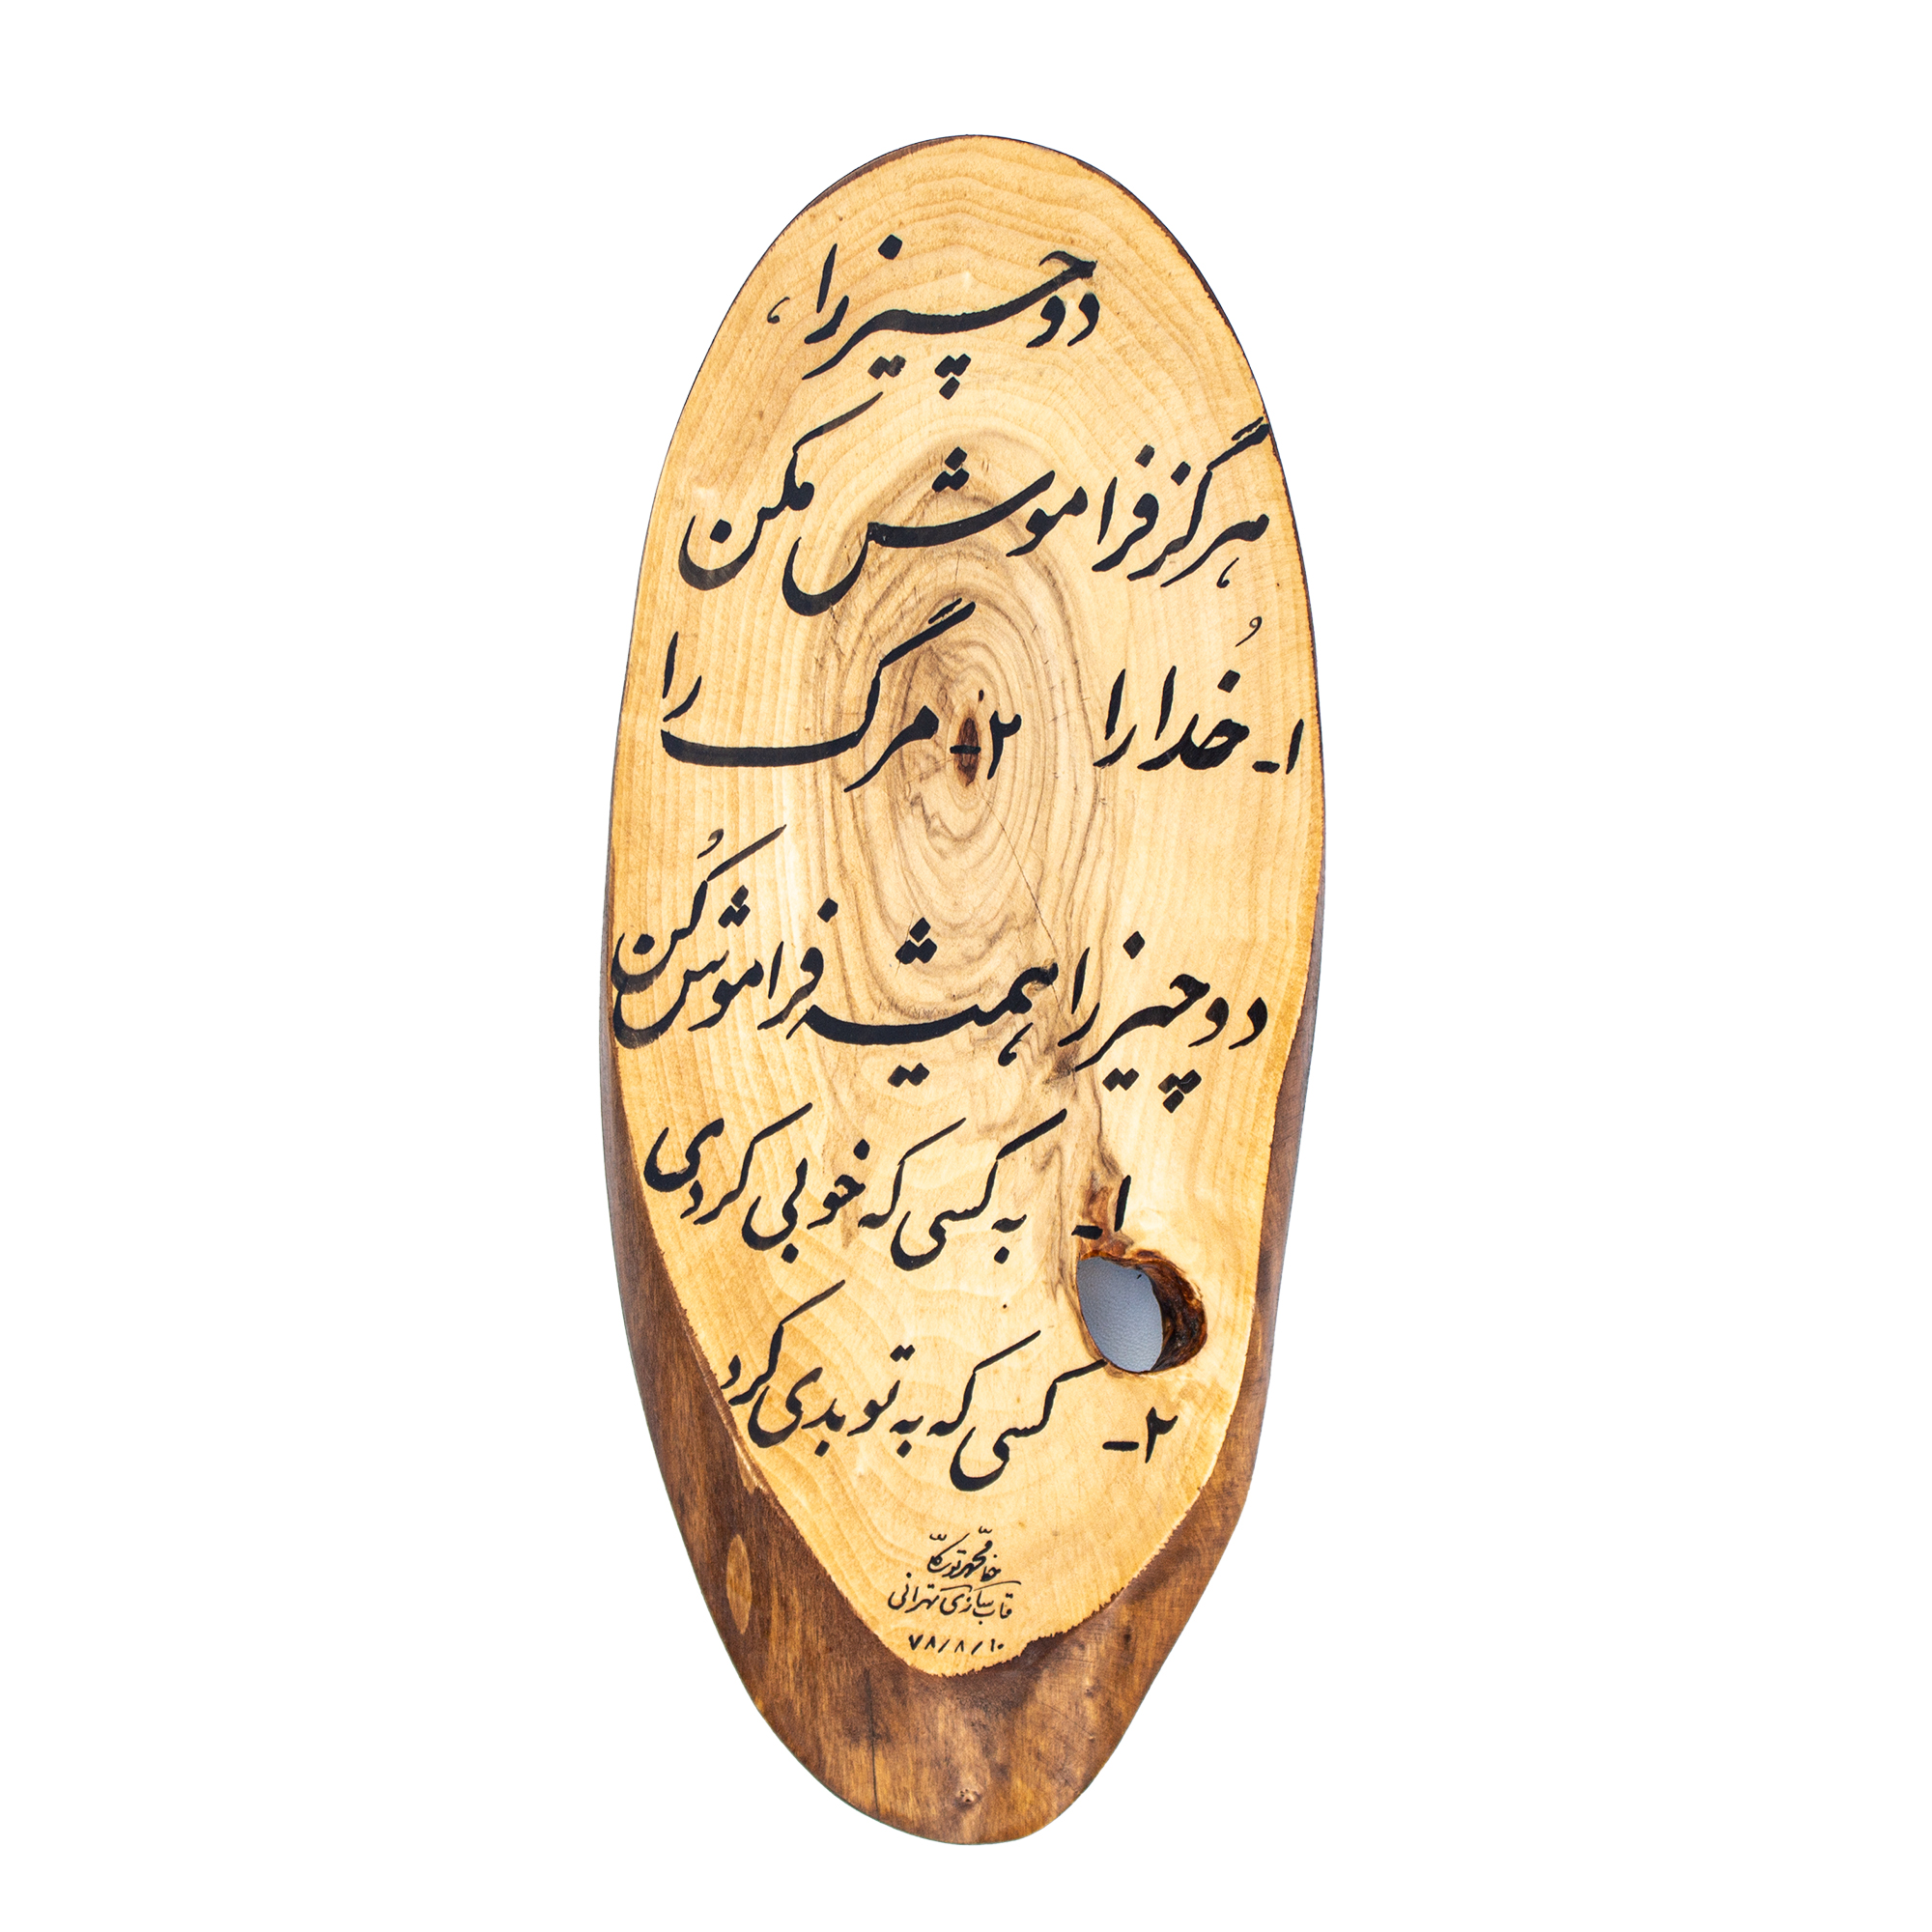 دو چیز را
هرگز فراموش مکن
۱- خُدا را ۲- مرگ را
دو چیز را همیشه فراموش کُن
۱- به کسی که خوبی کردی
۲- کسی که به تو بدی کرد
قاب سازی تهرانی
۷۸/۸/۱۰